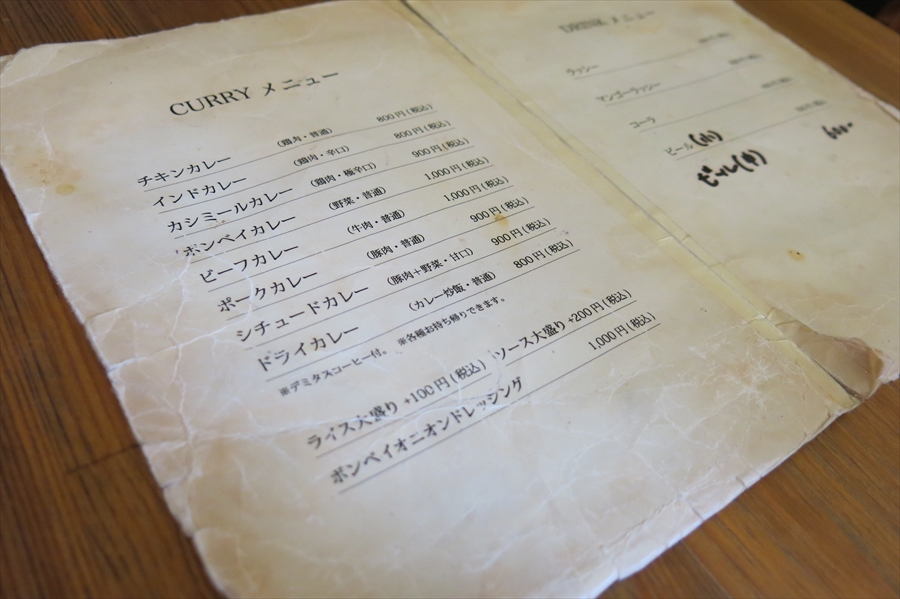 CURRY メニュー
チキンカレー (鶏肉・普通) 800円(税込)
インドカレー (鶏肉・辛口) 800円(税込)
カシミールカレー (鶏肉・極辛口) 900円(税込)
ボンベイカレー (野菜・普通) 1,000円(税込)
ビーフカレー (牛肉・普通) 1,000円(税込)
ポークカレー (豚肉・普通) 900円(税込)
シチュードカレー (豚肉+野菜・甘口) 900円(税込)
ドライカレー (カレー炒飯・普通) 800円(税込)
※デミタスコーヒー付。 ※各種お持ち帰りできます。
ライス大盛り +100円(税込) ソース大盛り +200円(税込)
ボンベイオニオンドレッシング 1,000円(税込)
DRINK メニュー
ラッシー
マンゴーラッシー
コーラ
ビール(小)
ビール(中) 600-